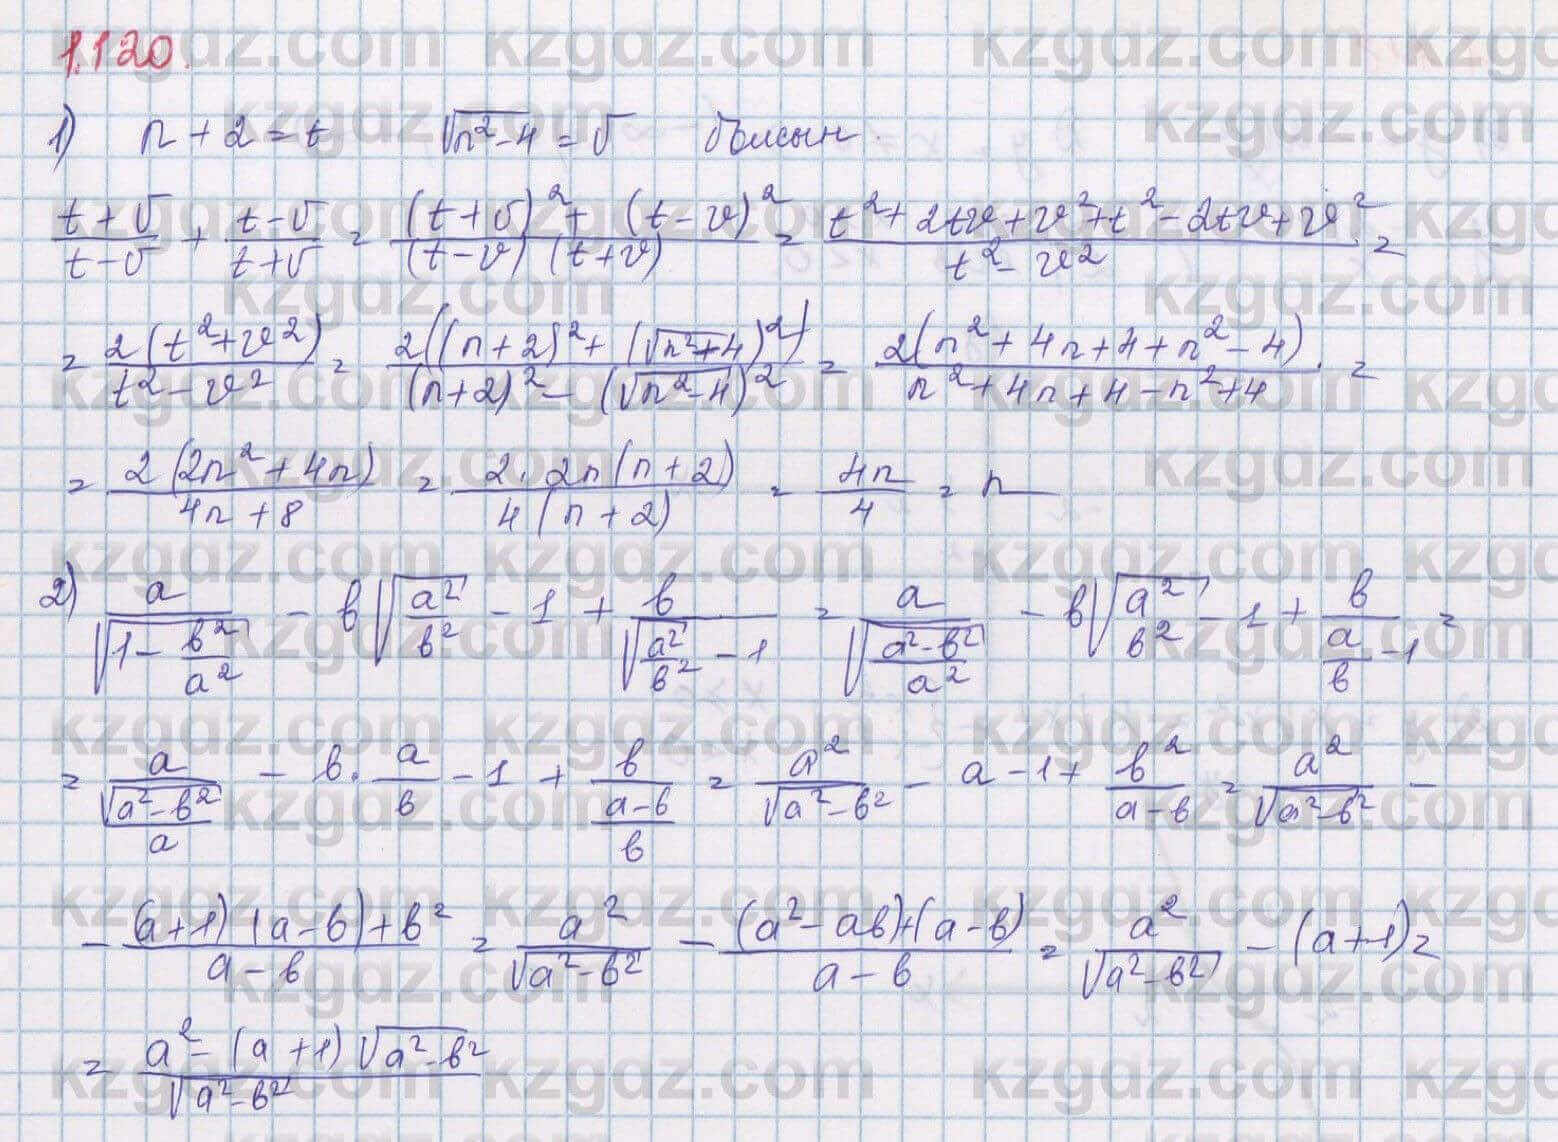 1.120.
1) n + 2 = t √(n² - 4) = v болсын.
(t + v)/(t - v) + (t - v)/(t + v) = ((t + v)² + (t - v)²)/((t - v)(t + v)) = (t² + 2tv + v² + t² - 2tv + v²)/(t² - v²) =
= 2(t² + v²)/(t² - v²) = 2((n + 2)² + (√(n² + 4))²)/((n + 2)² - (√(n² - 4))²) = 2(n² + 4n + 4 + n² - 4)/(n² + 4n + 4 - n² + 4) =
= 2(2n² + 4n)/(4n + 8) = 2 · 2n(n + 2)/(4(n + 2)) = 4n/4 = n
2) a/√(1 - b²/a²) - b√(a²/b² - 1) + b/√(a²/b² - 1) = a/√((a² - b²)/a²) - b√(a²/b² - 1) + b/(a/b - 1) =
= a/(√(a² - b²)/a) - b · a/b - 1 + b/((a - b)/b) = a²/√(a² - b²) - a - 1 + b²/(a - b) = a²/√(a² - b²) -
- ((a + 1)(a - b) + b²)/(a - b) = a²/√(a² - b²) - ((a² - ab) + (a - b))/(a - b) = a²/√(a² - b²) - (a + 1) =
= (a² - (a + 1)√(a² - b²))/√(a² - b²)
kzgdz.com